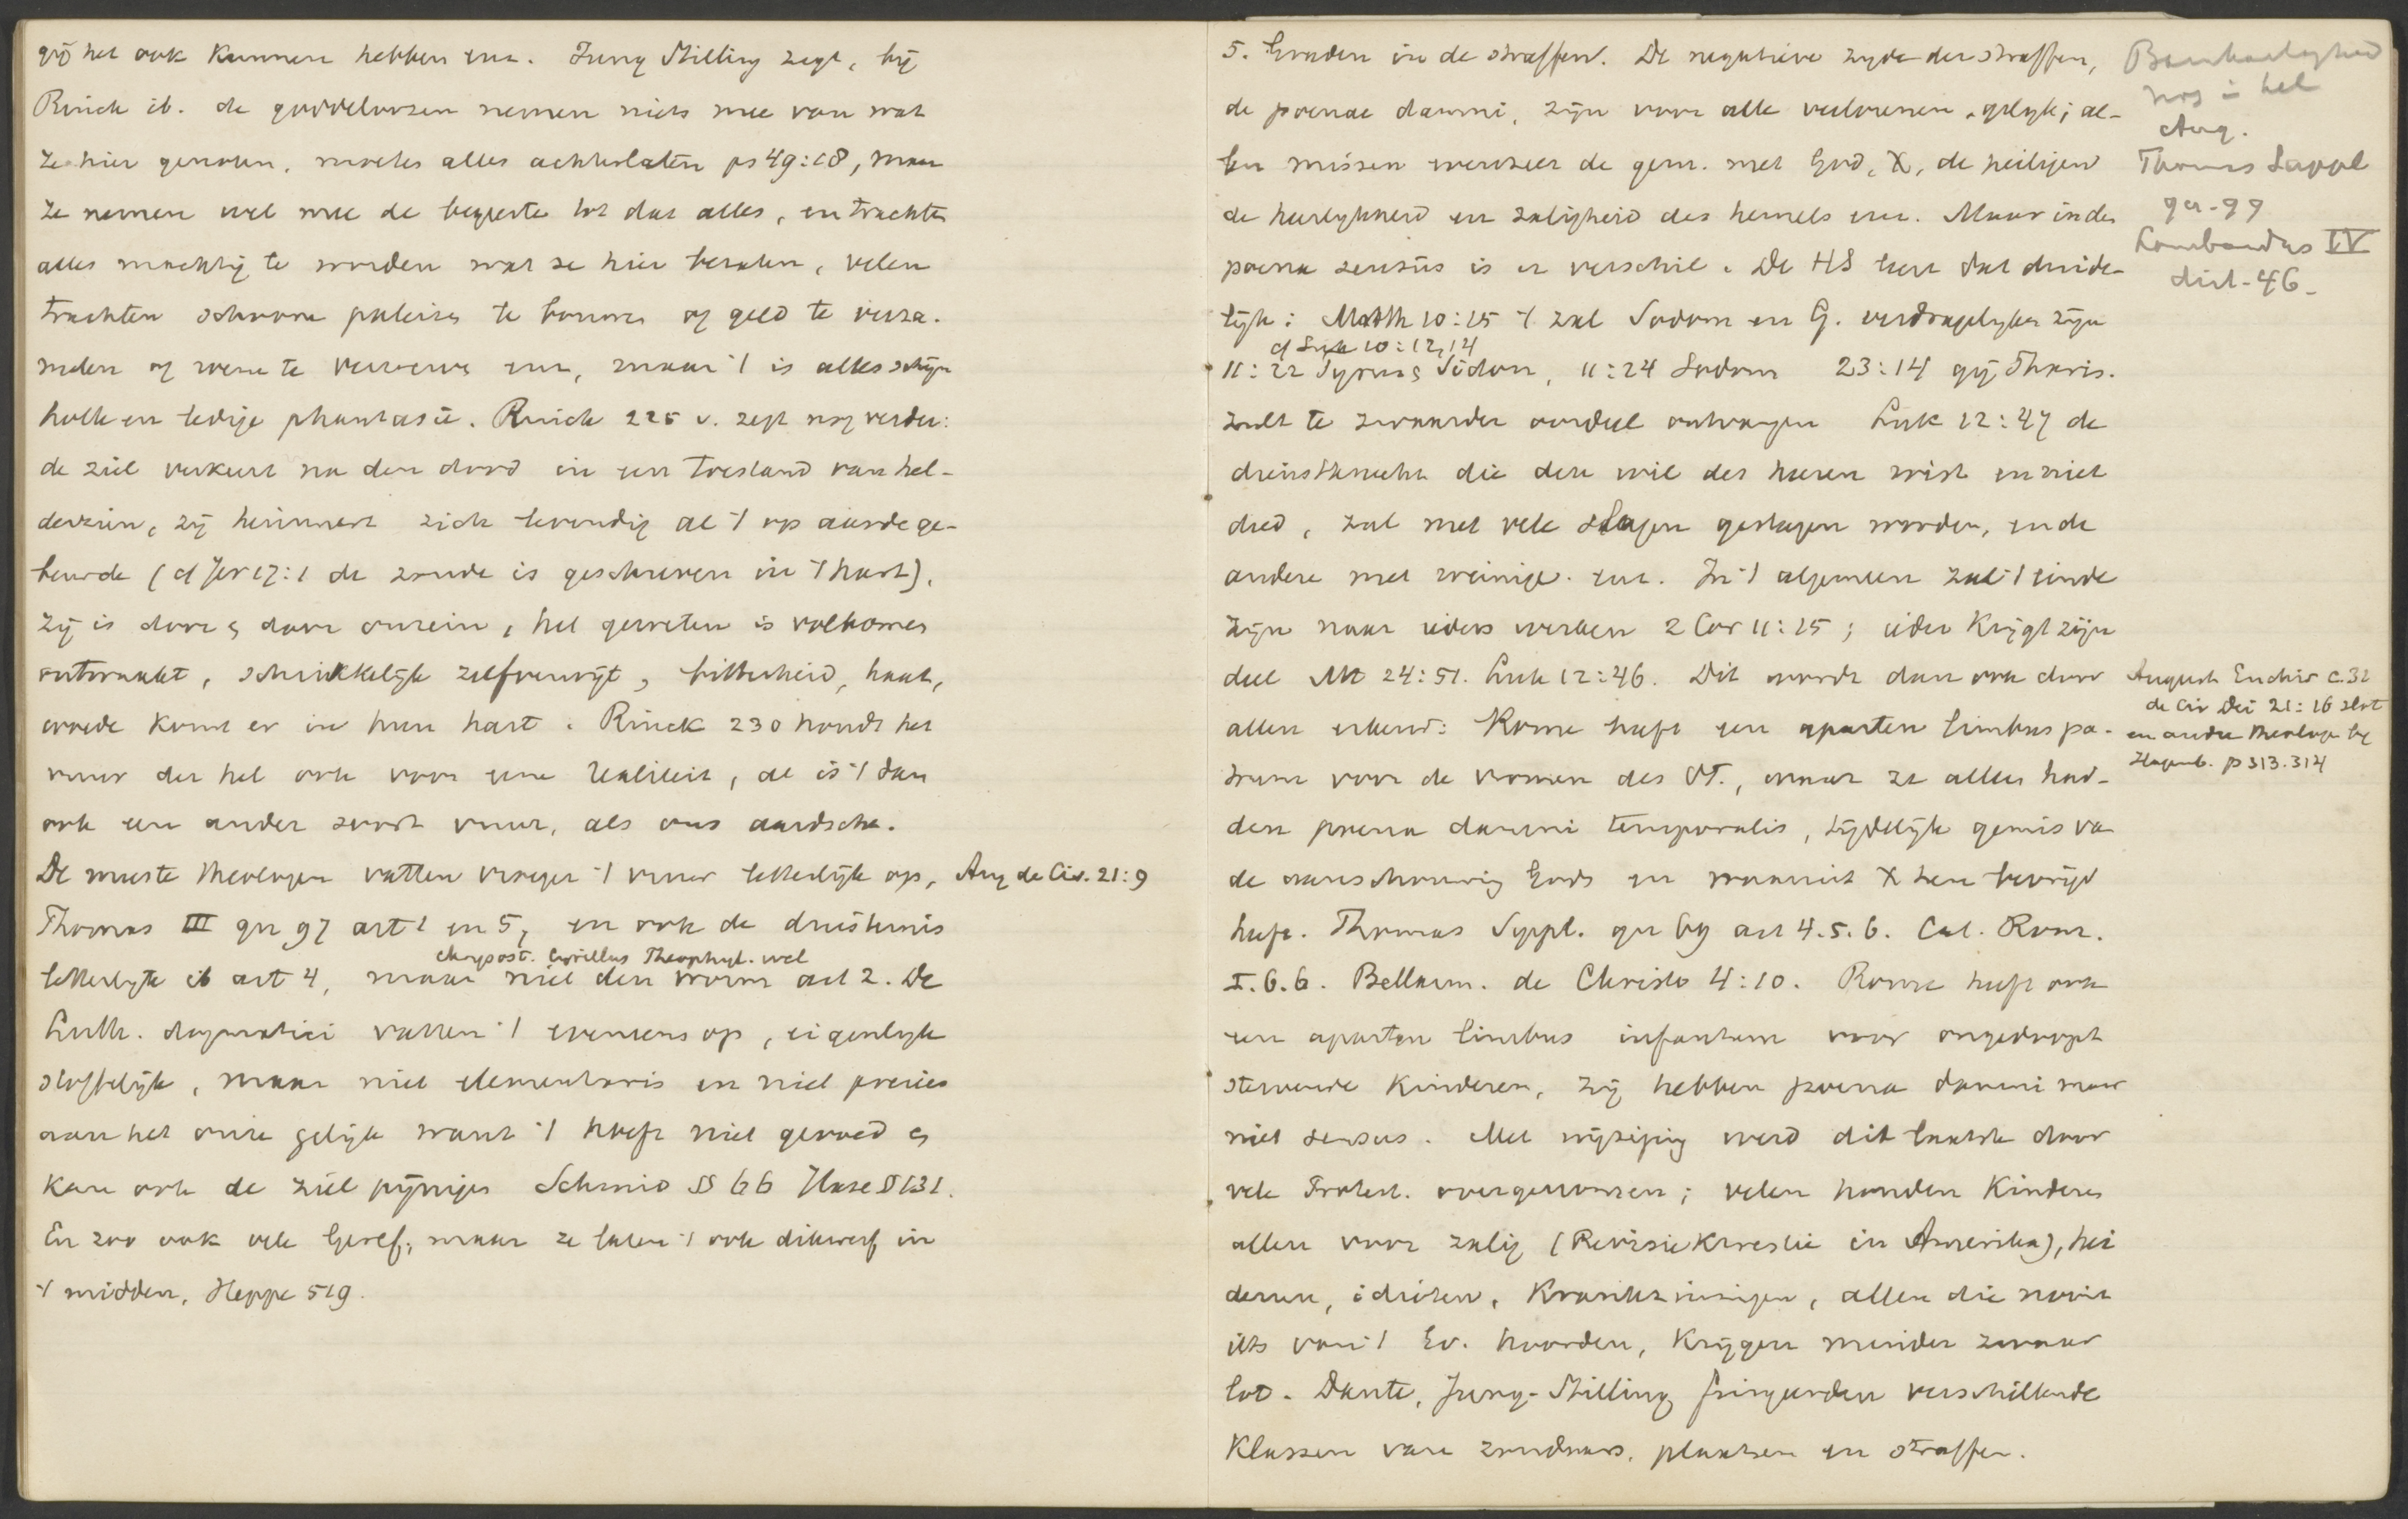 gij het ook kunnen hebben enz. Jung Stilling zegt, bij
Rinck ib. de goddeloozen nemen niets mee van wat
ze hier genoten, moeten alles achterlaten ps 49:18, maar
ze nemen wel mee de begeerte tot dat alles, en trachten
alles machtig te worden wat ze hier bezaten, velen
trachten schoone paleizen te bouwen of geld te verza-
melen of weer te verwerven enz, maar 't is alles schijn
holle en ledige phantasie. Rinck 225 v. zegt nog verder:
de ziel verkeert na den dood in een toestand van hel-
derzien, zij herinnert zich levendig al 't op aarde ge-
beurde (cf Jer 17:1 de zonde is geschreven in 't hart),
zij is door & door onrein, het geweten is volkomen
ontwaakt, schrikkelijk zelfverwijt, bitterheid, haat,
woede komt er in hun hart. Rinck 230 houdt het
vuur der hel ook voor eene realiteit, al is 't dan
ook een ander soort vuur, als ons aardsche.
De meeste theologen vatten vroeger 't vuur letterlijk op, Aug de Civ. 21:9
Thomas III qu 97 art 1 en 5, en ook de duisternis
Chrysost. Cyrillus Theophyl. wel
letterlijk ib art 4, maar niet den worm art 2. De
Luth. dogmatici vatten 't eveneens op, eigenlijk
stoffelijk, maar niet elementaris en niet precies
aan het onze gelijk want 't hoeft niet gevoed &
kan ook de ziel pijnigen Schmid § 66 Hase § 131.
En zoo ook vele Geref, maar ze laten 't ook dikwerf in
't midden, Heppe 519.
5. Graden in de straffen. De negatieve zijde der straffen,
de poenae damni, zijn voor alle verlorenen gelijk; al-
len missen evenzeer de gem. met God, X, de heiligen
de heerlijkheid en zaligheid des hemels enz. Maar in den
poena sensus is er verschil. De HS leert dat duide-
lijk: Matth 10:15 't zal Sodom en G. verdragelijker zijn
cf Luk 10:12,14
11:22 Tyrus & Sidon, 11:24 Sodom 23:14 gij Phariz.
zult te zwaarder oordeel ontvangen Luk 12:47 de
dienstknecht die den wil des heeren wist en niet
deed, zal met vele slagen geslagen worden, en de
andere met weinige enz. In 't algemeen zal 't einde
zijn naar ieders werken 2 Cor 11:15; ieder krijgt zijn
deel Mt 24:51. Luk 12:46. Dit wordt dan ook door
allen erkend: Rome heeft een aparten limbus pa-
trum voor de vromen des OT., maar ze allen had-
den poena damni temporalis, tijdelijk gemis van
de aanschouwing Gods en waaruit X hen bevrijd
heeft. Thomas Suppl. qu 69 art 4.5.6. Cat. Rom.
I.6.6. Bellarm. de Christo 4:10. Rome heeft ook
een aparten limbus infantum voor ongedoopt
stervende kinderen, zij hebben poena damni maar
niet sensus. Met wijziging werd dit laatste door
vele Protest. overgenomen; velen houden kinderen
allen voor zalig (Revisiekwestie in Amerika), hei
denen, idioten, krankzinnigen, allen die nooit
iets van 't Ev. hoorden, krijgen minder zwaar
lot. Dante, Jung-Stilling fingeerden verschillende
klassen van zondaars, plaatsen en straffen.
Barmhartigheid
nog in hel
Aug.
Thomas Suppl
qu. 99
Lombardus IV
dist. 46.
August Enchir c.32
de Civ Dei 21:16 slot
en andre theologen bij
Hagenb. p 313.314